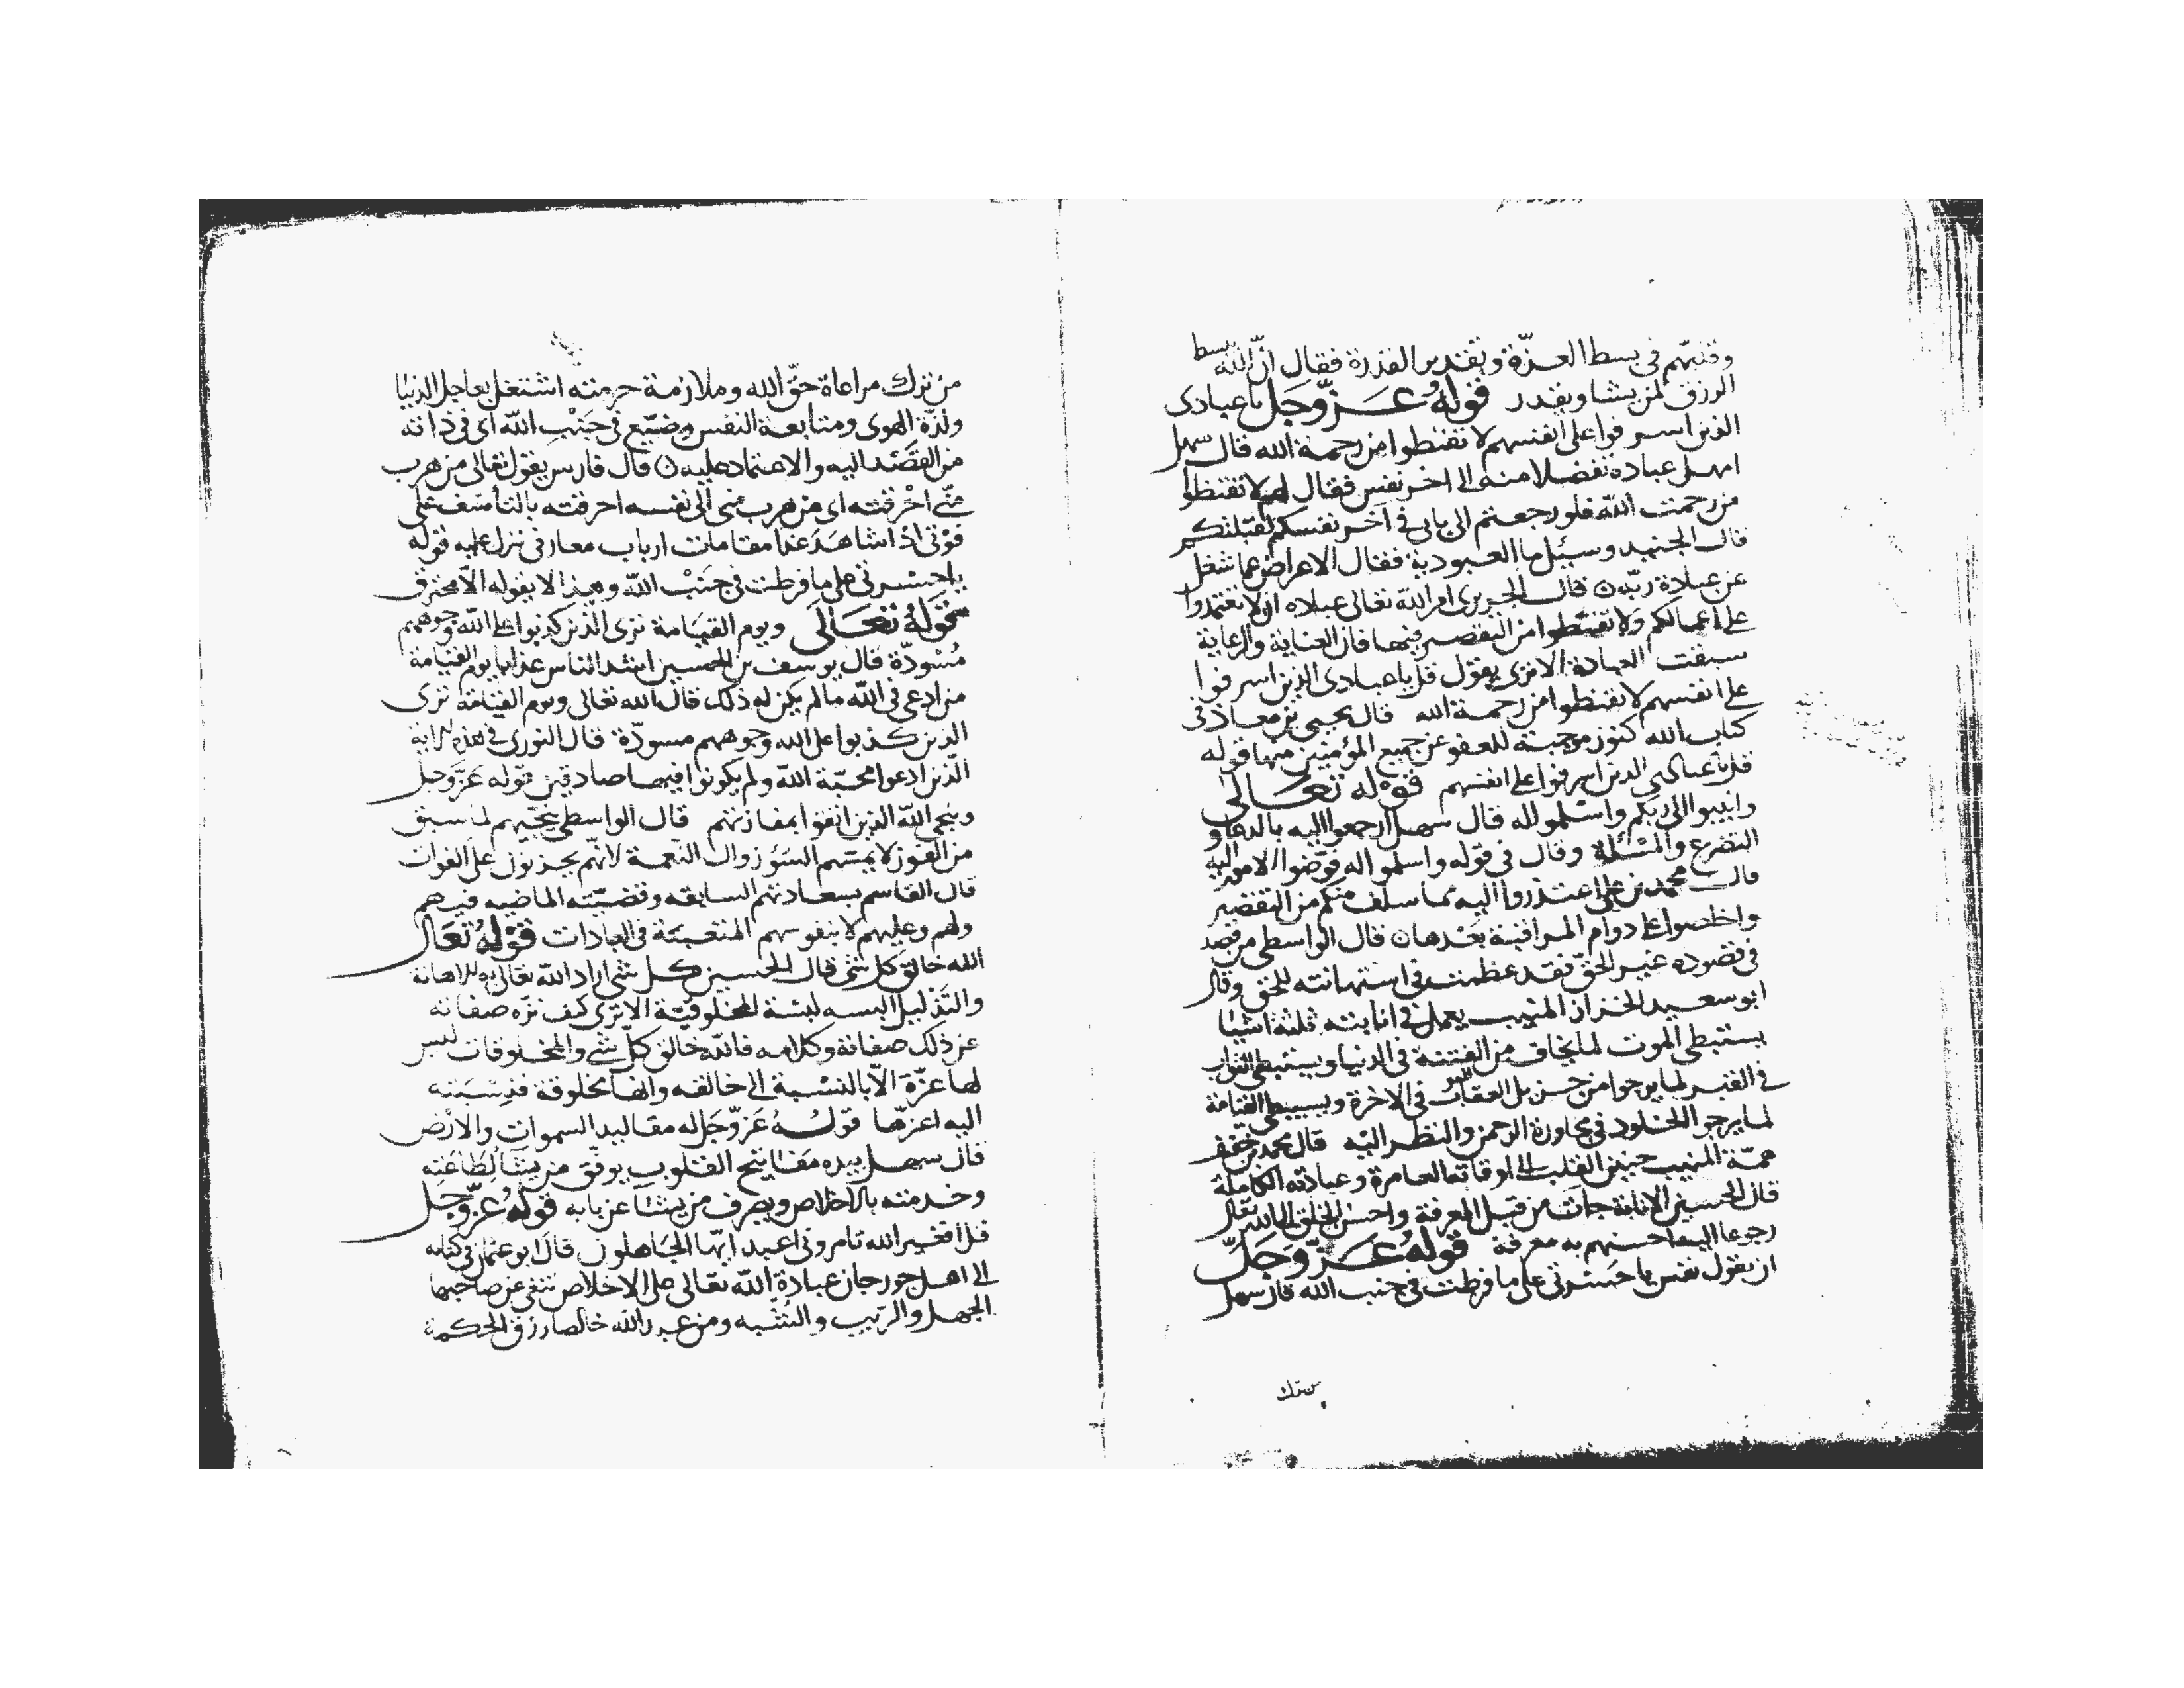 وقلبهم في بسط العزّة وتقدير القدرة فقال انّ الله يبسط
الرزق لمن يشا ويقدر قوله عزّ وجل يا عبادى
الذين اسرفوا على انفسهم لا تقنطوا من رحمة الله قال سهل
امهل عباده تفضلا منه الى اخر نفس فقال لهم لا تقنطوا
من رحمت الله فلو رجعتم الى بابى في آخر نفسكم لقبلتكم
قال الجنيد وسئل ما العبودية فقال الاعراض عما شغل
عن عبادة ربّه قال الجريرى امر الله تعالى عباده ان لا تعتمدوا
على اعمالكم ولا تقنطوا من التقصير فيها فان العناية والرعاية
سبقت العبادة الا ترى يقول قل يا عبادى الذين اسرفوا
على انفسهم لا تقنطوا من رحمة الله قال يحيى بن معاذ في
كتاب الله كنوز موجبة للعفو عن جميع المؤمنين منها قوله
قل يا عبادى الذين اسرفوا على انفسهم قوله تعالى
وانيبوا الى ربكم واسلموا له قال سهل ارجعوا اليه بالدعا و
التضرع والمسئلة وقال في قوله واسلموا له فوّضوا الامور اليه
قال محمد بن على اعتذروا اليه مما سلف منكم من التقصير
واخلصوا على دوام المراقبة بعدها قال الواسطى من قصد
في قصوده غير الحقّ فقد عظمت في استهانته للحق وقال
ابو سعيد الخزاز المنيب يعمل في انابته ثلثة اشيا
يستبطى الموت لما يخاف من الفتنة في الدنيا ويستبطى الثواب
في القبر لما يرجوا من حسن في الاخرة ويستبطى القيامة
لما يرجو الخلود في مجاورة الرحمن والنظر اليه قال محمد بن خفيف
همّة المنيب حنين القلب الى اوقاته العامرة وعبادته الكاملة
قال الحسين الانابة جات من قبل المعرفة واحسن الخلق الى الله تعالى
رجوعا اليه احسنهم به معرفة قوله عزّ وجلّ
ان تقول نفس يا حسرتى على ما فرطت في جنب الله قال سهل
من ترك
من ترك مراعاة حقّ الله وملازمة حرمته اشتغل بعاجل الدنيا
ولذّة الهوى ومتابعة النفس وضيّع في جنب الله اى في ذاته
من القصد اليه والاعتماد عليه قال فارس يقول تعالى من هرب
منّى احرقته اى من هرب منى الى نفسه احرقته بالتأسّف على
فوتى اذا شاهد غدا مقامات ارباب معارفى نزل عليه قوله
يا حسرتى على ما فرطت في جنب الله وهذا لا يقوله الّا محترق
قوله تعالى ويوم القيامة ترى الّذين كذبوا على الله وجوههم
مسودّة قال يوسف بن الحسين اشد الناس عذابا يوم القيامة
من ادعى في الله ما لم يكن له ذلك قال الله تعالى ويوم القيامة ترى
الذين كذبوا على الله وجوههم مسودّة قال النورى في هذه الاية
الّذين ادعوا محبّة الله ولم يكونوا فيها صادقين قوله عزّ وجل
وينجى الله الذين اتقوا بمفازتهم قال الواسطى ينجيهم لما سبق
من الفوز لا يمسّهم السوء زوال النعمة لانّهم يحزنون على الفوات
قال القاسم بسعادتهم السابقه وقضيّته الماضيه فيهم
ولهم وعليهم لا بنفوسهم المتعبة في العادات قوله تعالى
الله خالق كل شى قال الحسين كل شى اراد الله تعالى به الاهانة
والتذليل البسه لبسة المخلوقيّة الا ترى كيف نزّه صفاته
عن ذلك صفاته وكلامه فانه خالق كلّ شى والمخلوقات ليس
لها عزّة الّا بالنسبة الى خالقه وانها مخلوقة فنسبته
اليه اعزّها قوله عزّ وجل له مقاليد السموات والارض
قال سهل بيده مفاتيح القلوب يوفّق من يشا لطاعته
وخدمته بالاخلاص ويصرف من يشا عن بابه قوله عزّ وجل
قل افغير الله تامرونى اعبد ايّها الجاهلون قال ابو عثمان في كتابه
الى اهل جورجان عبادة الله تعالى على الاخلاص تنفى عن صاحبها
الجهل والريب والشبه ومن عبد الله خالصا رزق الحكمة